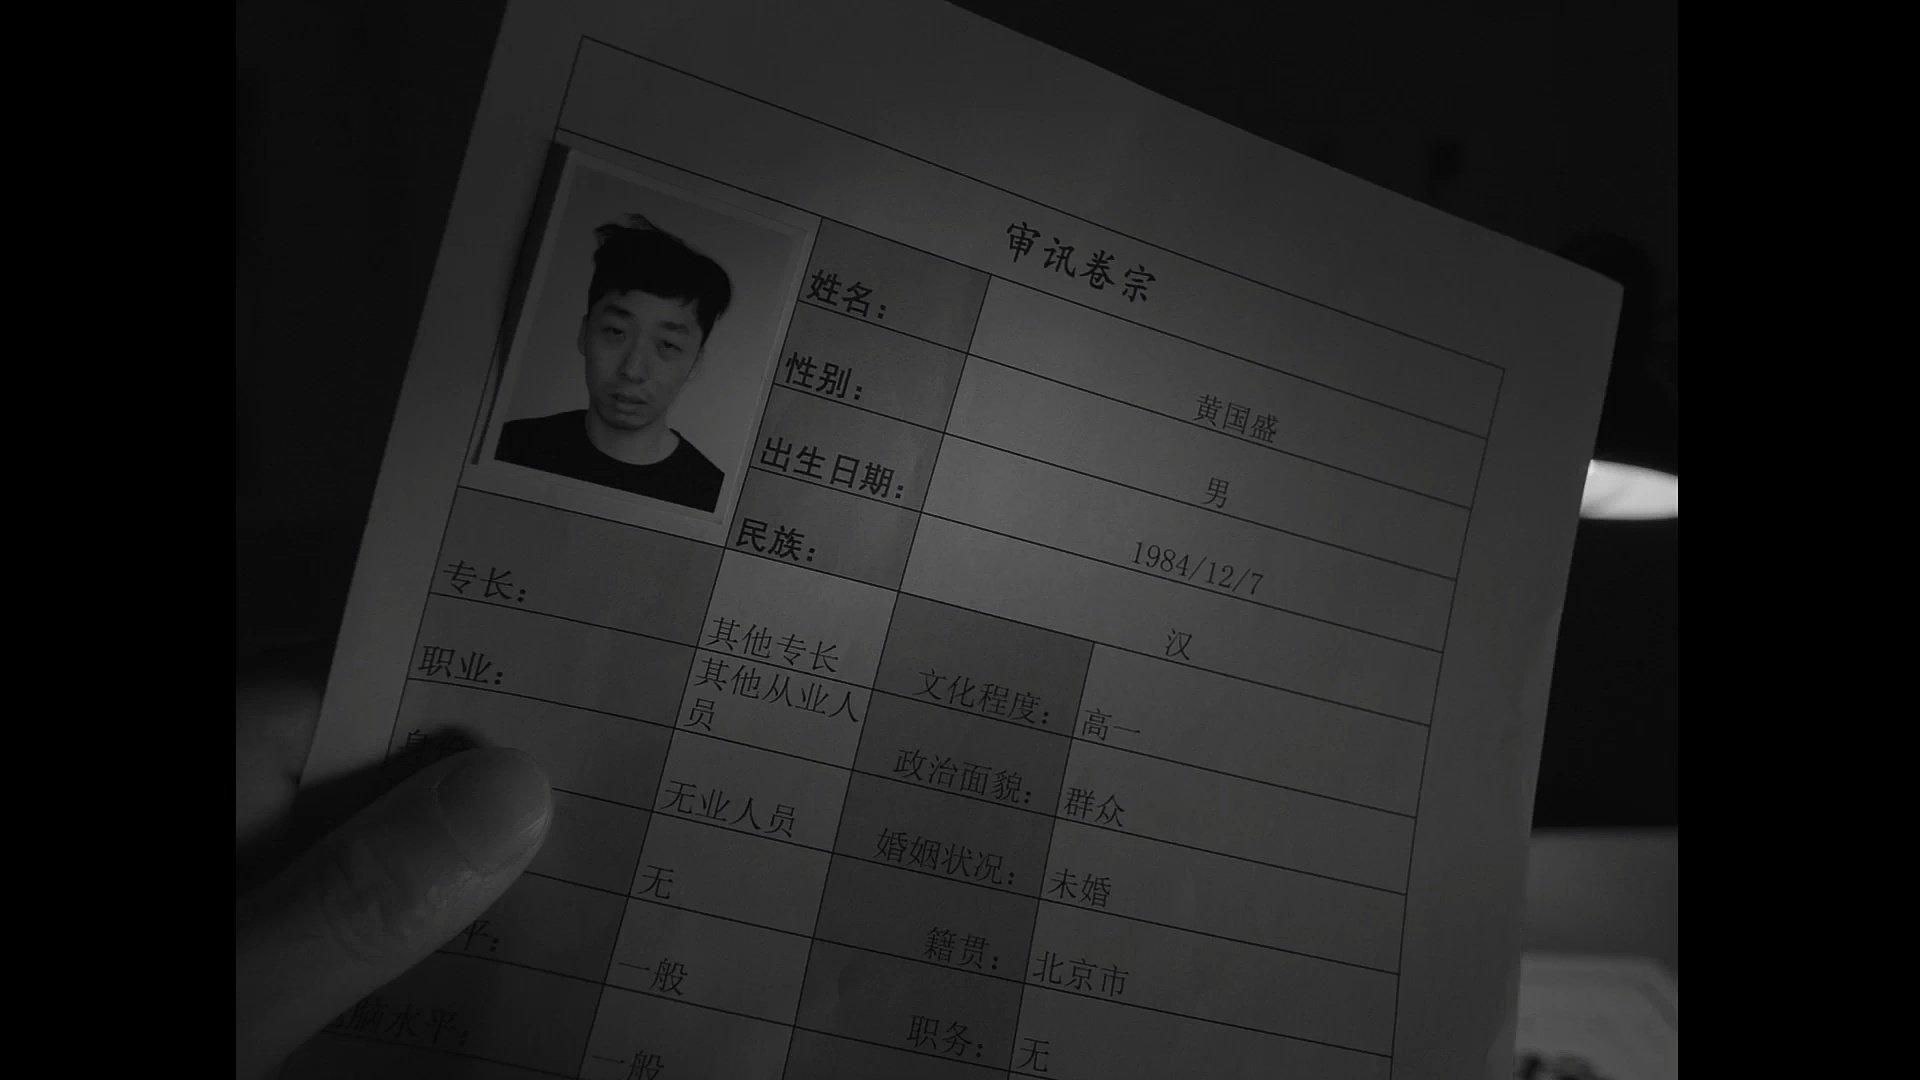 审讯卷宗
姓名：
黄国盛
性别：
男
出生日期：
1984/12/7
民族：
汉
专长：
其他专长
文化程度：
高一
职业：
其他从业人员
政治面貌：
群众
身份
无业人员
婚姻状况：
未婚
无
籍贯：
北京市
平：
一般
职务：
无
脑水平：
一般